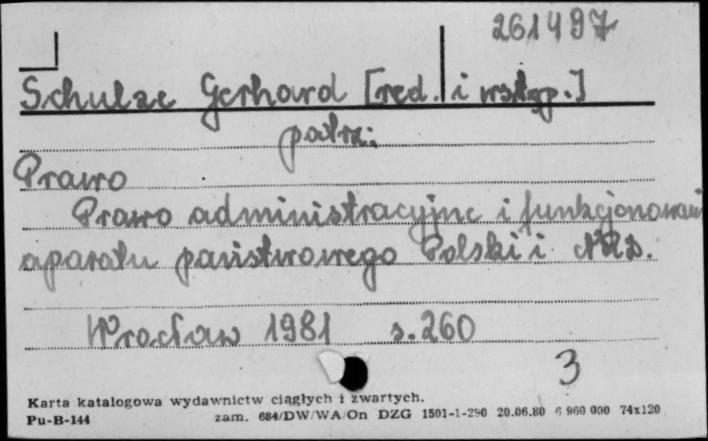 261497
Schulze Gerhard [red. i wstęp.]
patrz:
Prawo
Prawo administracyjne i funkcjonowani
aparatu państwowego Polski i NRD.
Wrocław 1981 s. 260
3
Karta katalogowa wydawnictw ciągłych i zwartych.
Pu-B-144 zam. 684/DW/WA/On DZG 1501-1-290 20.06.80 6 960 000 74x120